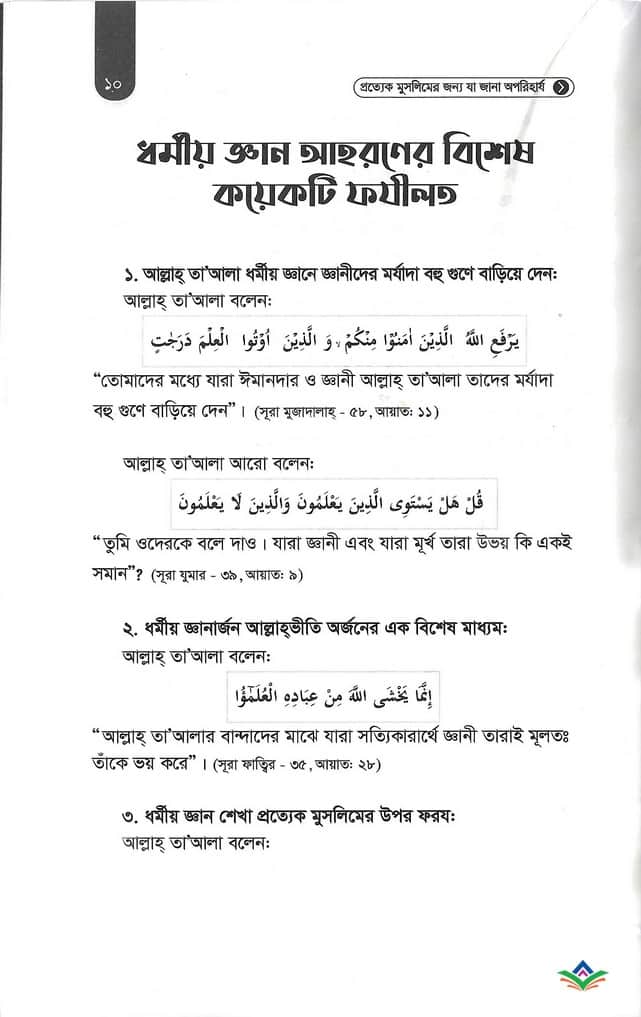 ১০
প্রত্যেক মুসলিমের জন্য যা জানা অপরিহার্য
ধর্মীয় জ্ঞান আহরণের বিশেষ
কয়েকটি ফযীলত
১. আল্লাহ্ তা'আলা ধর্মীয় জ্ঞানে জ্ঞানীদের মর্যাদা বহু গুণে বাড়িয়ে দেন:
আল্লাহ্ তা'আলা বলেন:
يَرْفَعِ اللهُ الَّذِيْنَ اٰمَنُوْا مِنْكُمْ ۙ وَ الَّذِيْنَ اُوْتُوا الْعِلْمَ دَرَجٰتٍ
“তোমাদের মধ্যে যারা ঈমানদার ও জ্ঞানী আল্লাহ্ তা'আলা তাদের মর্যাদা
বহু গুণে বাড়িয়ে দেন”। (সূরা মুজাদালাহ্ - ৫৮, আয়াত: ১১)
আল্লাহ্ তা'আলা আরো বলেন:
قُلْ هَلْ يَسْتَوِى الَّذِينَ يَعْلَمُونَ وَالَّذِينَ لَا يَعْلَمُونَ
“তুমি ওদেরকে বলে দাও। যারা জ্ঞানী এবং যারা মূর্খ তারা উভয় কি একই
সমান”? (সূরা যুমার - ৩৯, আয়াত: ৯)
২. ধর্মীয় জ্ঞানার্জন আল্লাহ্‌ভীতি অর্জনের এক বিশেষ মাধ্যম:
আল্লাহ্ তা'আলা বলেন:
إِنَّمَا يَخْشَى اللَّهَ مِنْ عِبَادِهِ الْعُلَمٰٓؤُا
“আল্লাহ্ তা'আলার বান্দাদের মাঝে যারা সত্যিকারার্থে জ্ঞানী তারাই মূলতঃ
তাঁকে ভয় করে”। (সূরা ফাত্বির - ৩৫, আয়াত: ২৮)
৩. ধর্মীয় জ্ঞান শেখা প্রত্যেক মুসলিমের উপর ফরয:
আল্লাহ্ তা'আলা বলেন: